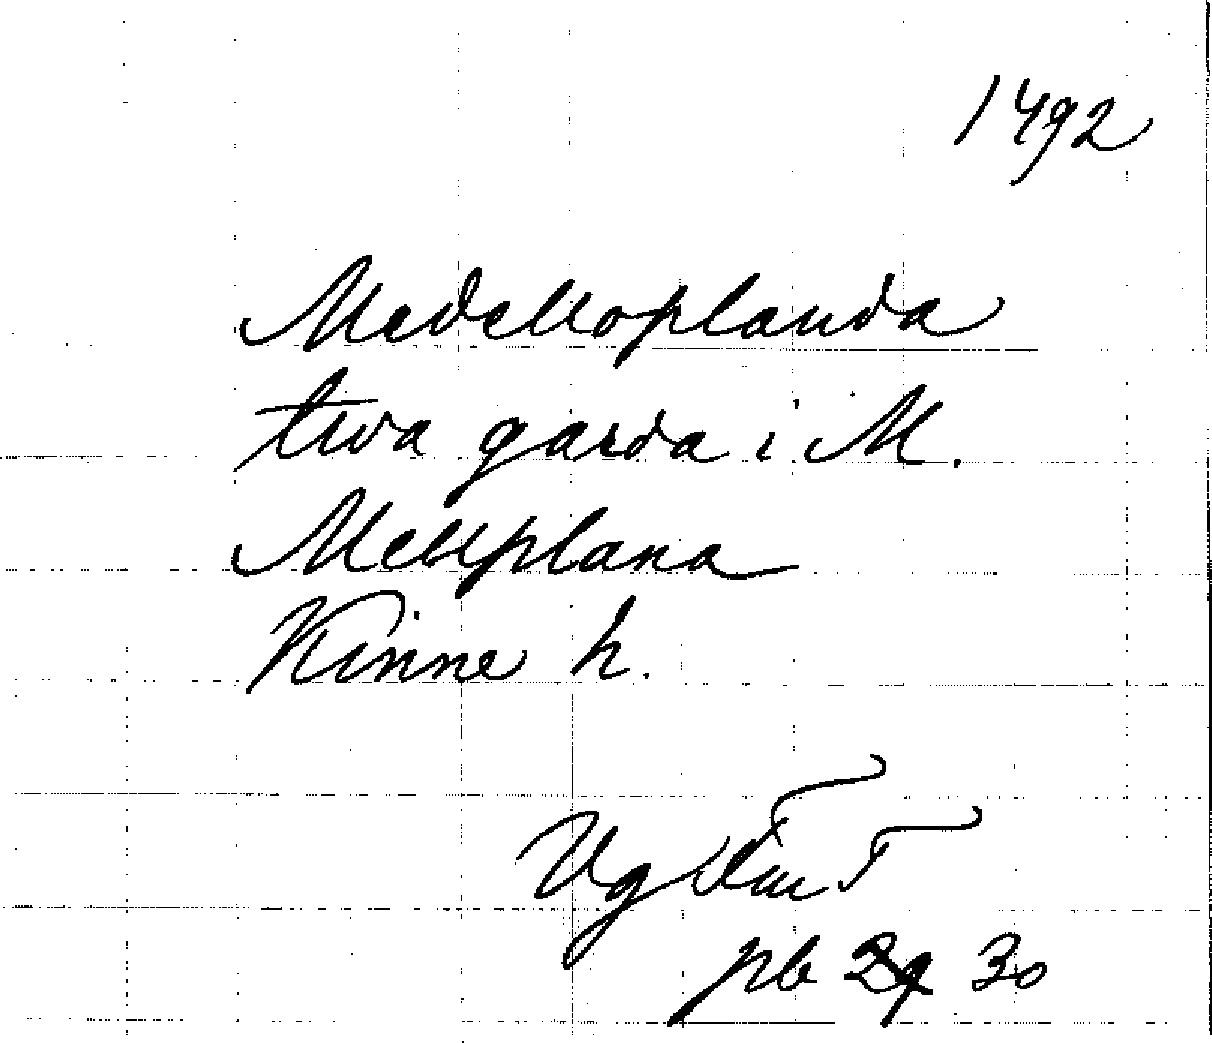 1492
Medelloplanda
twa garda i M.
Mellplana
Kinne h.
Vg
pb 30